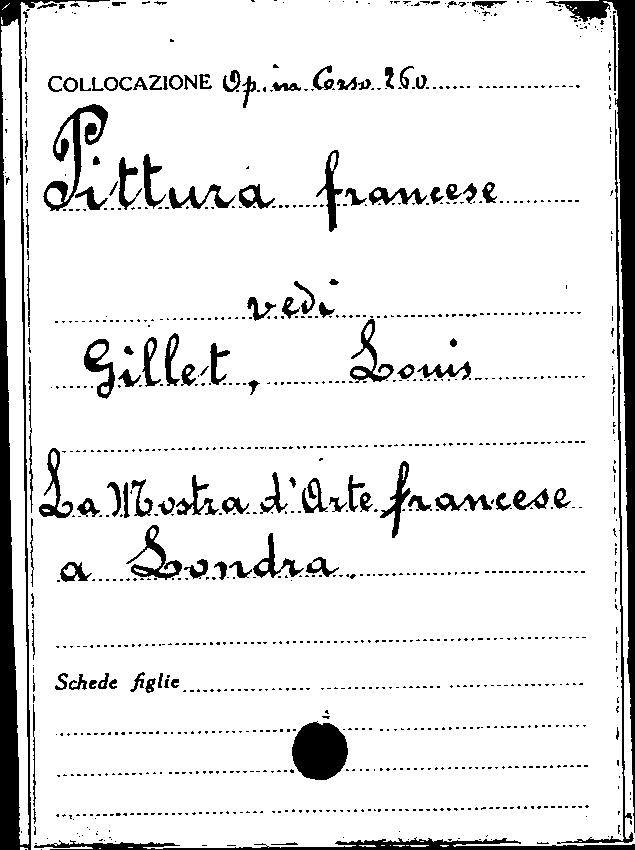 COLLOCAZIONE Op. in Corso 260
Pittura francese
vedi
Gillet, Louis
La Mostra d'Arte francese
a Londra.
Schede figlie